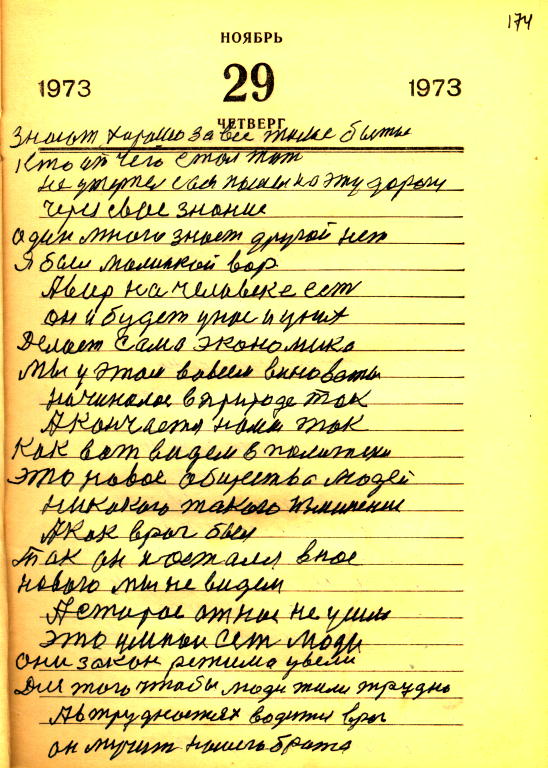 174
НОЯБРЬ
1973 29 1973
ЧЕТВЕРГ
Знают хорошо за все такое былье
Кто от чего стал тот
не умер сам по эту дорогу
через свое знание
один много знает другой нет
Я был малинкой вор
А вир на человеке есть
он и будет у нас и у них
Делает сама экономика
Мы у этом вовсем виноваты
начиналось в природе так
А кончается нами так
Как вот видем в политеки
это новое общества людей
никокого такого изминения
А как враг был
так он и остался в нас
нового мы не видем
А старое от нас не ушло
это умнои ест люди
они закон режима увели
Для того чтобы люди жили трудно
А в трудностях водится враг
он мучит нашего брата